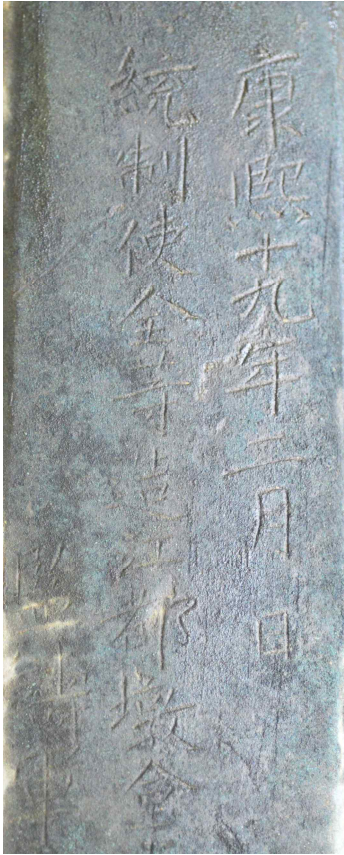 康熙十九年二月 日
統制使全等造江都墩會